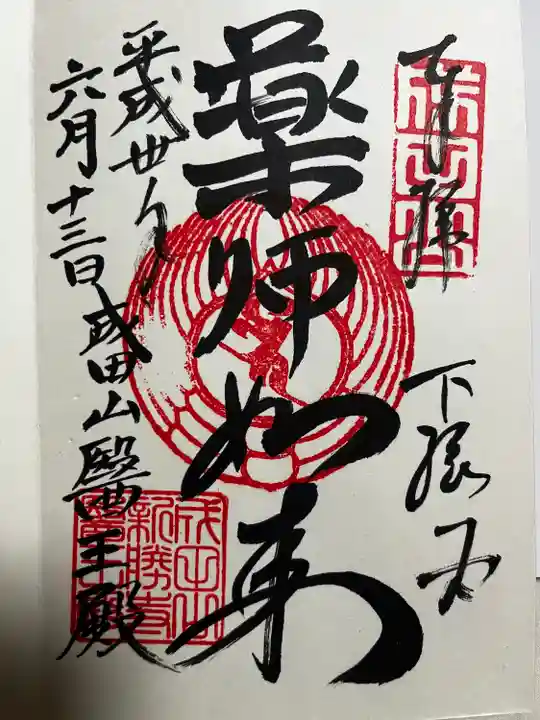 奉拝
下総国
薬師如来
平成卅年
六月十三日 成田山醫王殿
成田山
新勝寺